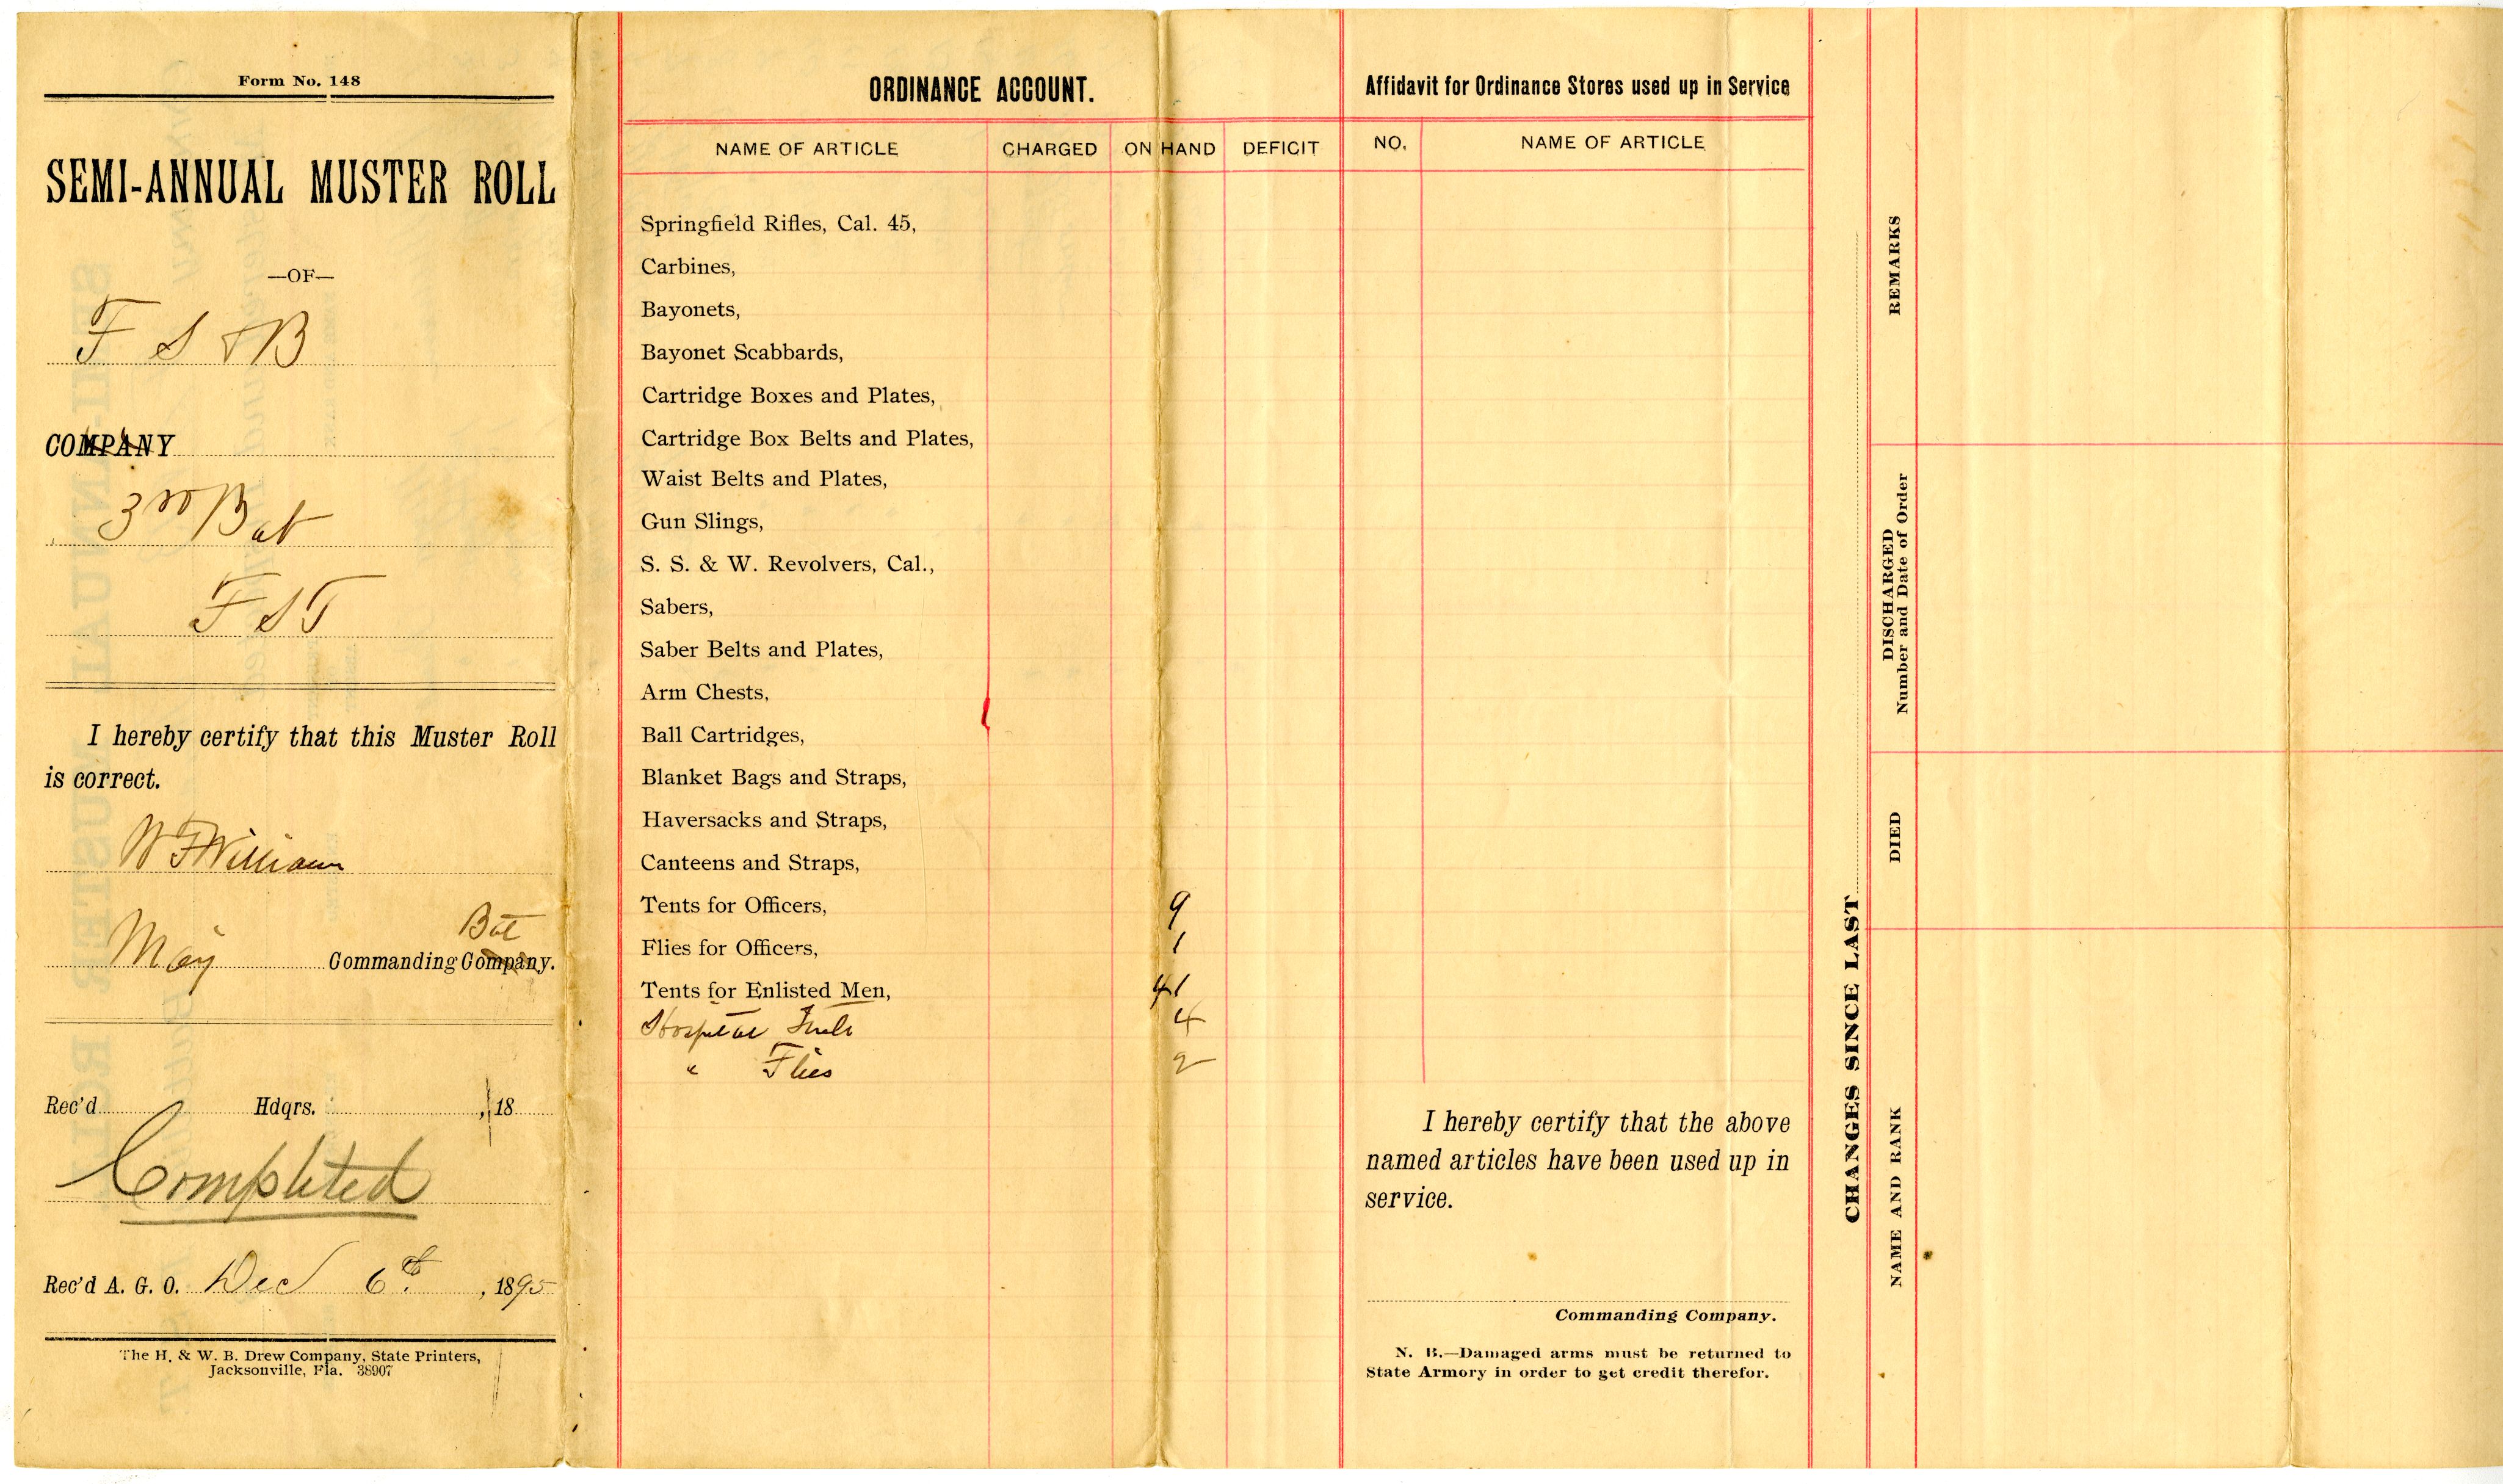 Form No. 148
SEMI-ANNUAL MUSTER ROLL
—OF—
F S & B
COMPANY
3rd Bat
F S T
I hereby certify that this Muster Roll
is correct.
W F Williams
Maj Commanding Company. Bat
Rec'd Hdqrs. , 18
Completed
Rec'd A. G. O. Dec 6th , 1895
The H. & W. B. Drew Company, State Printers,
Jacksonville, Fla. 38907
ORDINANCE ACCOUNT.
NAME OF ARTICLE CHARGED ON HAND DEFICIT
Springfield Rifles, Cal. 45,
Carbines,
Bayonets,
Bayonet Scabbards,
Cartridge Boxes and Plates,
Cartridge Box Belts and Plates,
Waist Belts and Plates,
Gun Slings,
S. S. & W. Revolvers, Cal.,
Sabers,
Saber Belts and Plates,
Arm Chests,
Ball Cartridges,
Blanket Bags and Straps,
Haversacks and Straps,
Canteens and Straps,
Tents for Officers, 9
Flies for Officers, 1
Tents for Enlisted Men, 41
Hospital Tents 4
" Flies 2
Affidavit for Ordinance Stores used up in Service
NO. NAME OF ARTICLE
I hereby certify that the above
named articles have been used up in
service.
Commanding Company.
N. B.—Damaged arms must be returned to
State Armory in order to get credit therefor.
CHANGES SINCE LAST
NAME AND RANK
DIED
DISCHARGED
Number and Date of Order
REMARKS